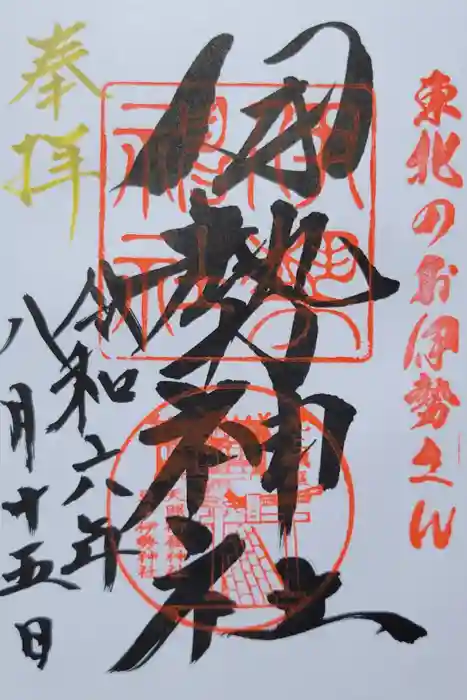 東北のお伊勢さん
伊勢神社
奉拝
令和六年
八月十五日